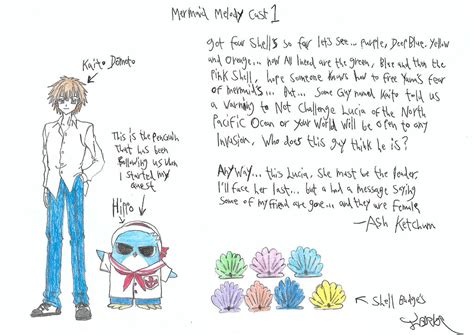 Mermaid Melody Cast 1
Kaito Domoto
This is the Penguin
That has been
following us when
I started my
quest
Hippo
Got four Shells so far let's see... purple, Deep Blue. Yellow
and orange... now All I need are the green, Blue and then the
Pink Shell, hope someone knows how to free Yaum's fear
of mermaids... But... Some Guy named Kaito told us
a warning to Not Challenge Lucia of the North
Pacific Ocean or Your World will be open to any
Invasion, Who does this guy think he is?
Any Way... this Lucia, She must be the leader,
I'll face her last... but a had a message saying
some of my friend are gone... and they are female
-Ash Ketchum
Shell Badges